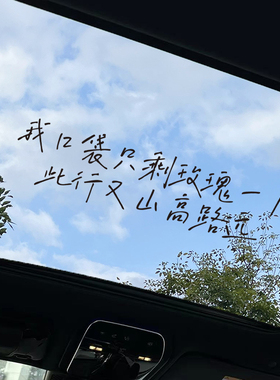 我口袋只剩玫瑰一
此行又山高路远